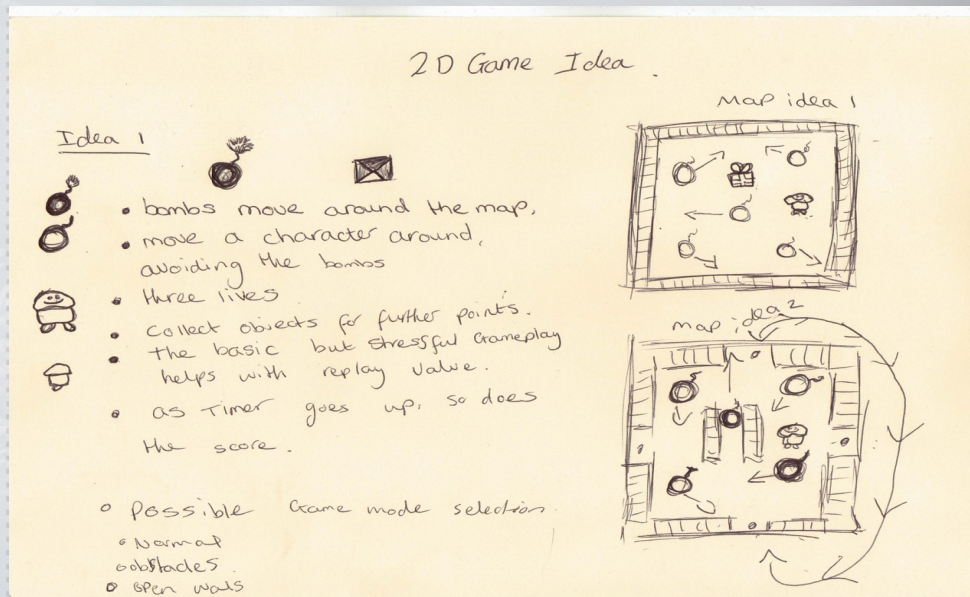 2D Game Idea.
Map idea 1
Idea 1
bombs move around the map.
move a character around,
avoiding the bombs
three lives
collect objects for further points.
the basic but stressful Gameplay
helps with replay value.
map idea 2
as Timer goes up, so does
the score.
Possible Game mode selection.
Normal
obstacles.
open wals